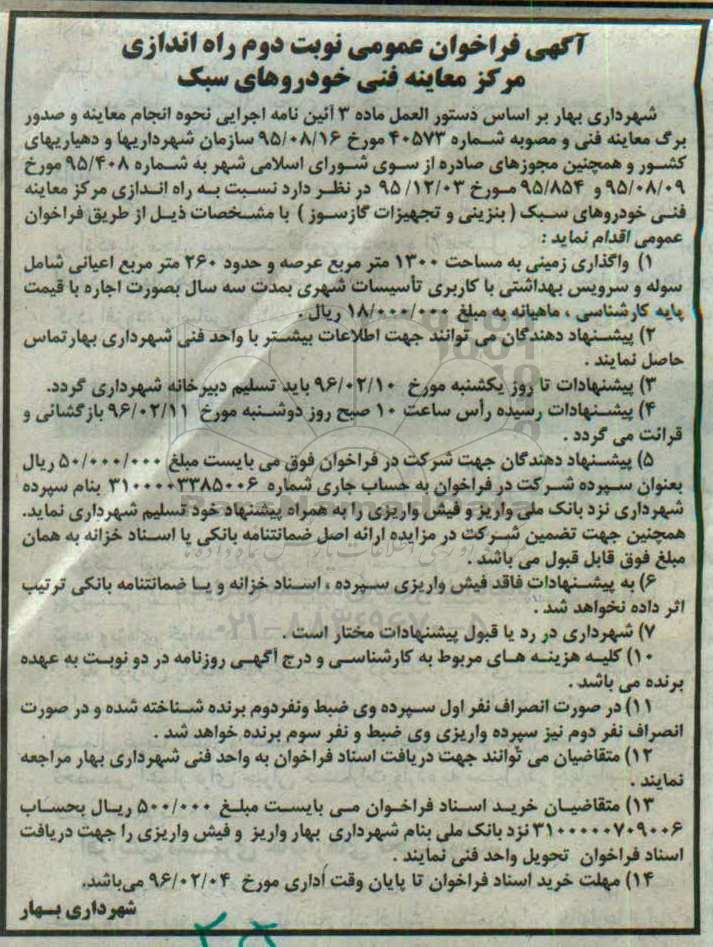 آگهی فراخوان عمومی نوبت دوم راه اندازی
مرکز معاینه فنی خودروهای سبک
شهرداری بهار بر اساس دستور العمل ماده ۳ آئین نامه اجرایی نحوه انجام معاینه و صدور
برگ معاینه فنی و مصوبه شماره ۴۰۵۷۳ مورخ ۹۵/۰۸/۱۶ سازمان شهرداریها و دهیاریهای
کشور و همچنین مجوزهای صادره از سوی شورای اسلامی شهر به شماره ۹۵/۴۰۸ مورخ
۹۵/۰۸/۰۹ و ۹۵/۸۵۴ مورخ ۹۵/۱۲/۰۳ در نظر دارد نسبت به راه اندازی مرکز معاینه
فنی خودروهای سبک ( بنزینی و تجهیزات گازسوز ) با مشخصات ذیل از طریق فراخوان
عمومی اقدام نماید :
۱) واگذاری زمینی به مساحت ۱۳۰۰ متر مربع عرصه و حدود ۲۶۰ متر مربع اعیانی شامل
سوله و سرویس بهداشتی با کاربری تأسیسات شهری بمدت سه سال بصورت اجاره با قیمت
پایه کارشناسی ، ماهیانه به مبلغ ۱۸/۰۰۰/۰۰۰ ریال .
۲) پیشنهاد دهندگان می توانند جهت اطلاعات بیشتر با واحد فنی شهرداری بهار تماس
حاصل نمایند .
۳) پیشنهادات تا روز یکشنبه مورخ ۹۶/۰۲/۱۰ باید تسلیم دبیرخانه شهرداری گردد.
۴) پیشنهادات رسیده رأس ساعت ۱۰ صبح روز دوشنبه مورخ ۹۶/۰۲/۱۱ بازگشائی و
قرائت می گردد .
۵) پیشنهاد دهندگان جهت شرکت در فراخوان فوق می بایست مبلغ ۵۰/۰۰۰/۰۰۰ ریال
بعنوان سپرده شرکت در فراخوان به حساب جاری شماره ۳۱۰۰۰۰۳۳۸۵۰۰۶ بنام سپرده
شهرداری نزد بانک ملی واریز و فیش واریزی را به همراه پیشنهاد خود تسلیم شهرداری نماید.
همچنین جهت تضمین شرکت در مزایده ارائه اصل ضمانتنامه بانکی یا اسناد خزانه به همان
مبلغ فوق قابل قبول می باشد .
۶) به پیشنهادات فاقد فیش واریزی سپرده ، اسناد خزانه و یا ضمانتنامه بانکی ترتیب
اثر داده نخواهد شد .
۷) شهرداری در رد یا قبول پیشنهادات مختار است .
۱۰) کلیه هزینه های مربوط به کارشناسی و درج آگهی روزنامه در دو نوبت به عهده
برنده می باشد .
۱۱) در صورت انصراف نفر اول سپرده وی ضبط ونفردوم برنده شناخته شده و در صورت
انصراف نفر دوم نیز سپرده واریزی وی ضبط و نفر سوم برنده خواهد شد .
۱۲) متقاضیان می توانند جهت دریافت اسناد فراخوان به واحد فنی شهرداری بهار مراجعه
نمایند .
۱۳) متقاضیان خرید اسناد فراخوان می بایست مبلغ ۵۰۰/۰۰۰ ریال بحساب
۳۱۰۰۰۰۰۷۰۹۰۰۶ نزد بانک ملی بنام شهرداری بهار واریز و فیش واریزی را جهت دریافت
اسناد فراخوان تحویل واحد فنی نمایند .
۱۴) مهلت خرید اسناد فراخوان تا پایان وقت اداری مورخ ۹۶/۰۲/۰۴ می‌باشد.
شهرداری بهار